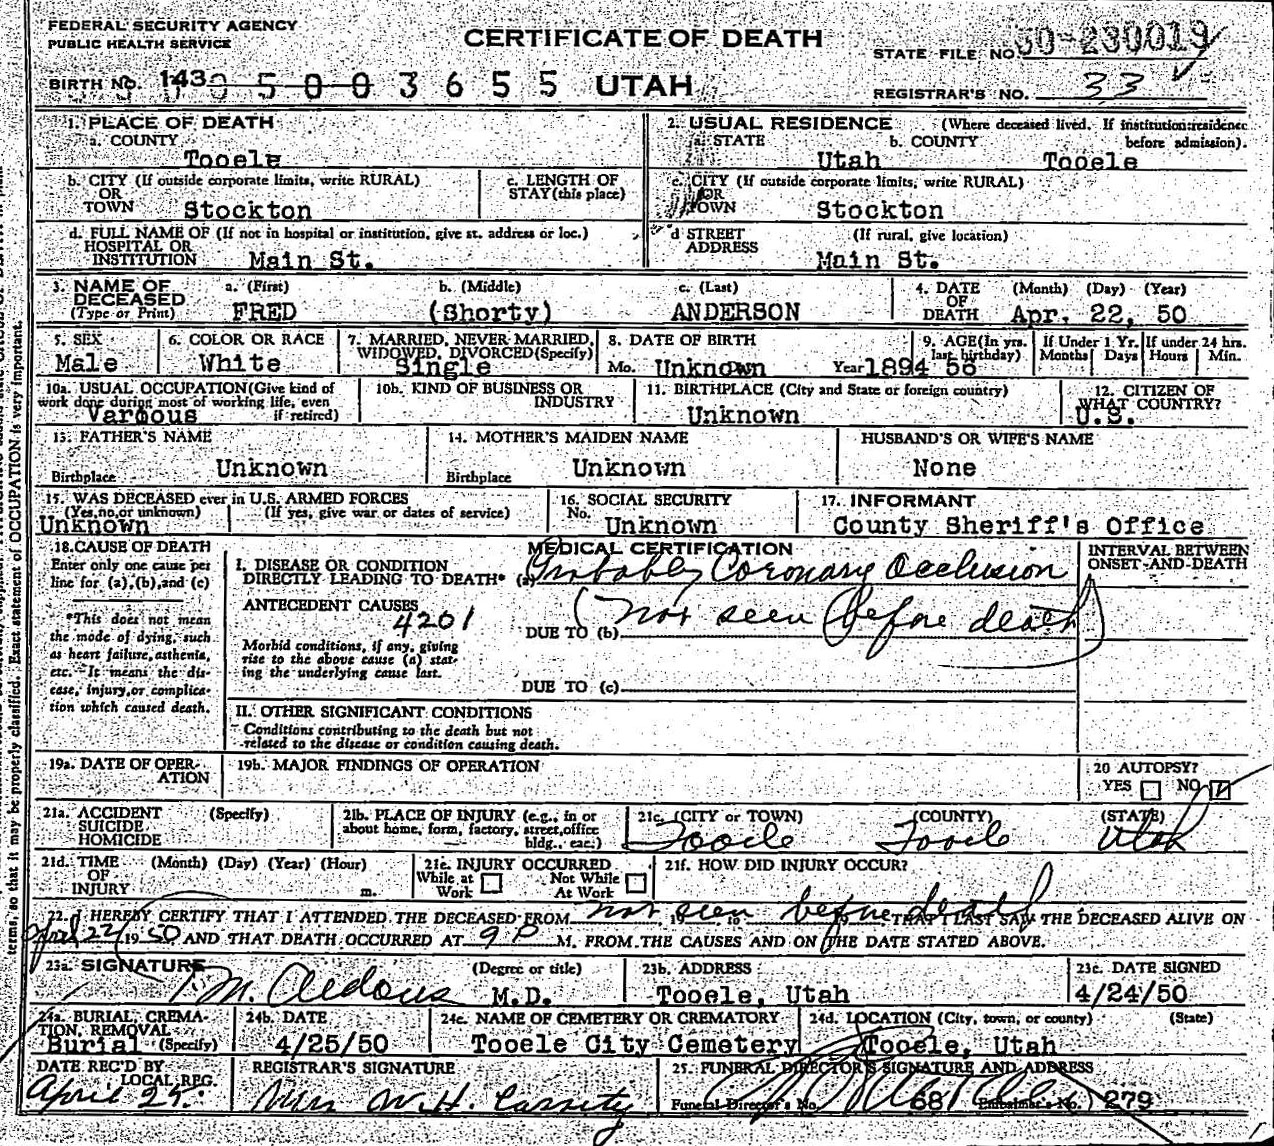 FEDERAL SECURITY AGENCY
PUBLIC HEALTH SERVICE
CERTIFICATE OF DEATH
STATE FILE NO. 50-230019
BIRTH NO. 143 0 5 0 0 0 3 6 5 5 UTAH
REGISTRAR'S NO. 33
1. PLACE OF DEATH
a. COUNTY
Tooele
2. USUAL RESIDENCE (Where deceased lived. If institution: residence before admission).
a. STATE b. COUNTY
Utah Tooele
b. CITY (If outside corporate limits, write RURAL)
OR
TOWN Stockton
c. LENGTH OF
STAY (this place)
c. CITY (If outside corporate limits, write RURAL)
OR
TOWN Stockton
d. FULL NAME OF (If not in hospital or institution, give st. address or loc.)
HOSPITAL OR
INSTITUTION Main St.
d STREET (If rural, give location)
ADDRESS
Main St.
3. NAME OF a. (First) b. (Middle) c. (Last)
DECEASED
(Type or Print) FRED (Shorty) ANDERSON
4. DATE (Month) (Day) (Year)
OF
DEATH Apr. 22, 50
5. SEX
Male
6. COLOR OR RACE
White
7. MARRIED, NEVER MARRIED,
WIDOWED, DIVORCED (Specify)
Single
8. DATE OF BIRTH
Mo. Unknown Year 1894
9. AGE (In yrs.
last birthday)
56
If Under 1 Yr.
Months Days
If under 24 hrs.
Hours Min.
10a. USUAL OCCUPATION (Give kind of
work done during most of working life, even
if retired)
Various
10b. KIND OF BUSINESS OR
INDUSTRY
11. BIRTHPLACE (City and State or foreign country)
Unknown
12. CITIZEN OF
WHAT COUNTRY?
U.S.
13. FATHER'S NAME
Unknown
Birthplace
14. MOTHER'S MAIDEN NAME
Unknown
Birthplace
HUSBAND'S OR WIFE'S NAME
None
15. WAS DECEASED ever in U.S. ARMED FORCES
(Yes, no, or unknown) (If yes, give war or dates of service)
Unknown
16. SOCIAL SECURITY
No.
Unknown
17. INFORMANT
County Sheriff's Office
18. CAUSE OF DEATH
Enter only one cause per
line for (a), (b), and (c)
*This does not mean
the mode of dying, such
as heart failure, asthenia,
etc. It means the dis-
ease, injury, or complica-
tion which caused death.
MEDICAL CERTIFICATION
INTERVAL BETWEEN
ONSET AND DEATH
I. DISEASE OR CONDITION
DIRECTLY LEADING TO DEATH* (a) Probably Coronary Occlusion
ANTECEDENT CAUSES
4201
DUE TO (b) (not seen before death)
Morbid conditions, if any, giving
rise to the above cause (a) stat-
ing the underlying cause last.
DUE TO (c)
II. OTHER SIGNIFICANT CONDITIONS
Conditions contributing to the death but not
related to the disease or condition causing death.
19a. DATE OF OPER-
ATION
19b. MAJOR FINDINGS OF OPERATION
20 AUTOPSY?
YES NO
21a. ACCIDENT (Specify)
SUICIDE
HOMICIDE
21b. PLACE OF INJURY (e.g., in or
about home, form, factory, street, office
bldg., eac.)
21c. (CITY or TOWN) (COUNTY) (STATE)
Tooele Tooele Utah
21d. TIME (Month) (Day) (Year) (Hour)
OF
INJURY m.
21e. INJURY OCCURRED
While at Not While
Work At Work
21f. HOW DID INJURY OCCUR?
22. I HEREBY CERTIFY THAT I ATTENDED THE DECEASED FROM not seen before death THAT I LAST SAW THE DECEASED ALIVE ON
April 22 1950 AND THAT DEATH OCCURRED AT 9 P M. FROM THE CAUSES AND ON THE DATE STATED ABOVE.
23a. SIGNATURE (Degree or title)
M.D.
23b. ADDRESS
Tooele, Utah
23c. DATE SIGNED
4/24/50
24a. BURIAL, CREMA-
TION, REMOVAL
(Specify)
Burial
24b. DATE
4/25/50
24c. NAME OF CEMETERY OR CREMATORY
Tooele City Cemetery
24d. LOCATION (City, town, or county) (State)
Tooele, Utah
DATE REC'D BY
LOCAL REG.
April 25.
REGISTRAR'S SIGNATURE
Mrs W. H. Cassity
25. FUNERAL DIRECTOR'S SIGNATURE AND ADDRESS
Funeral Director's No. 68 Embalmer's No. 279
terms, so that it may be properly classified. Exact statement of OCCUPATION is very important.